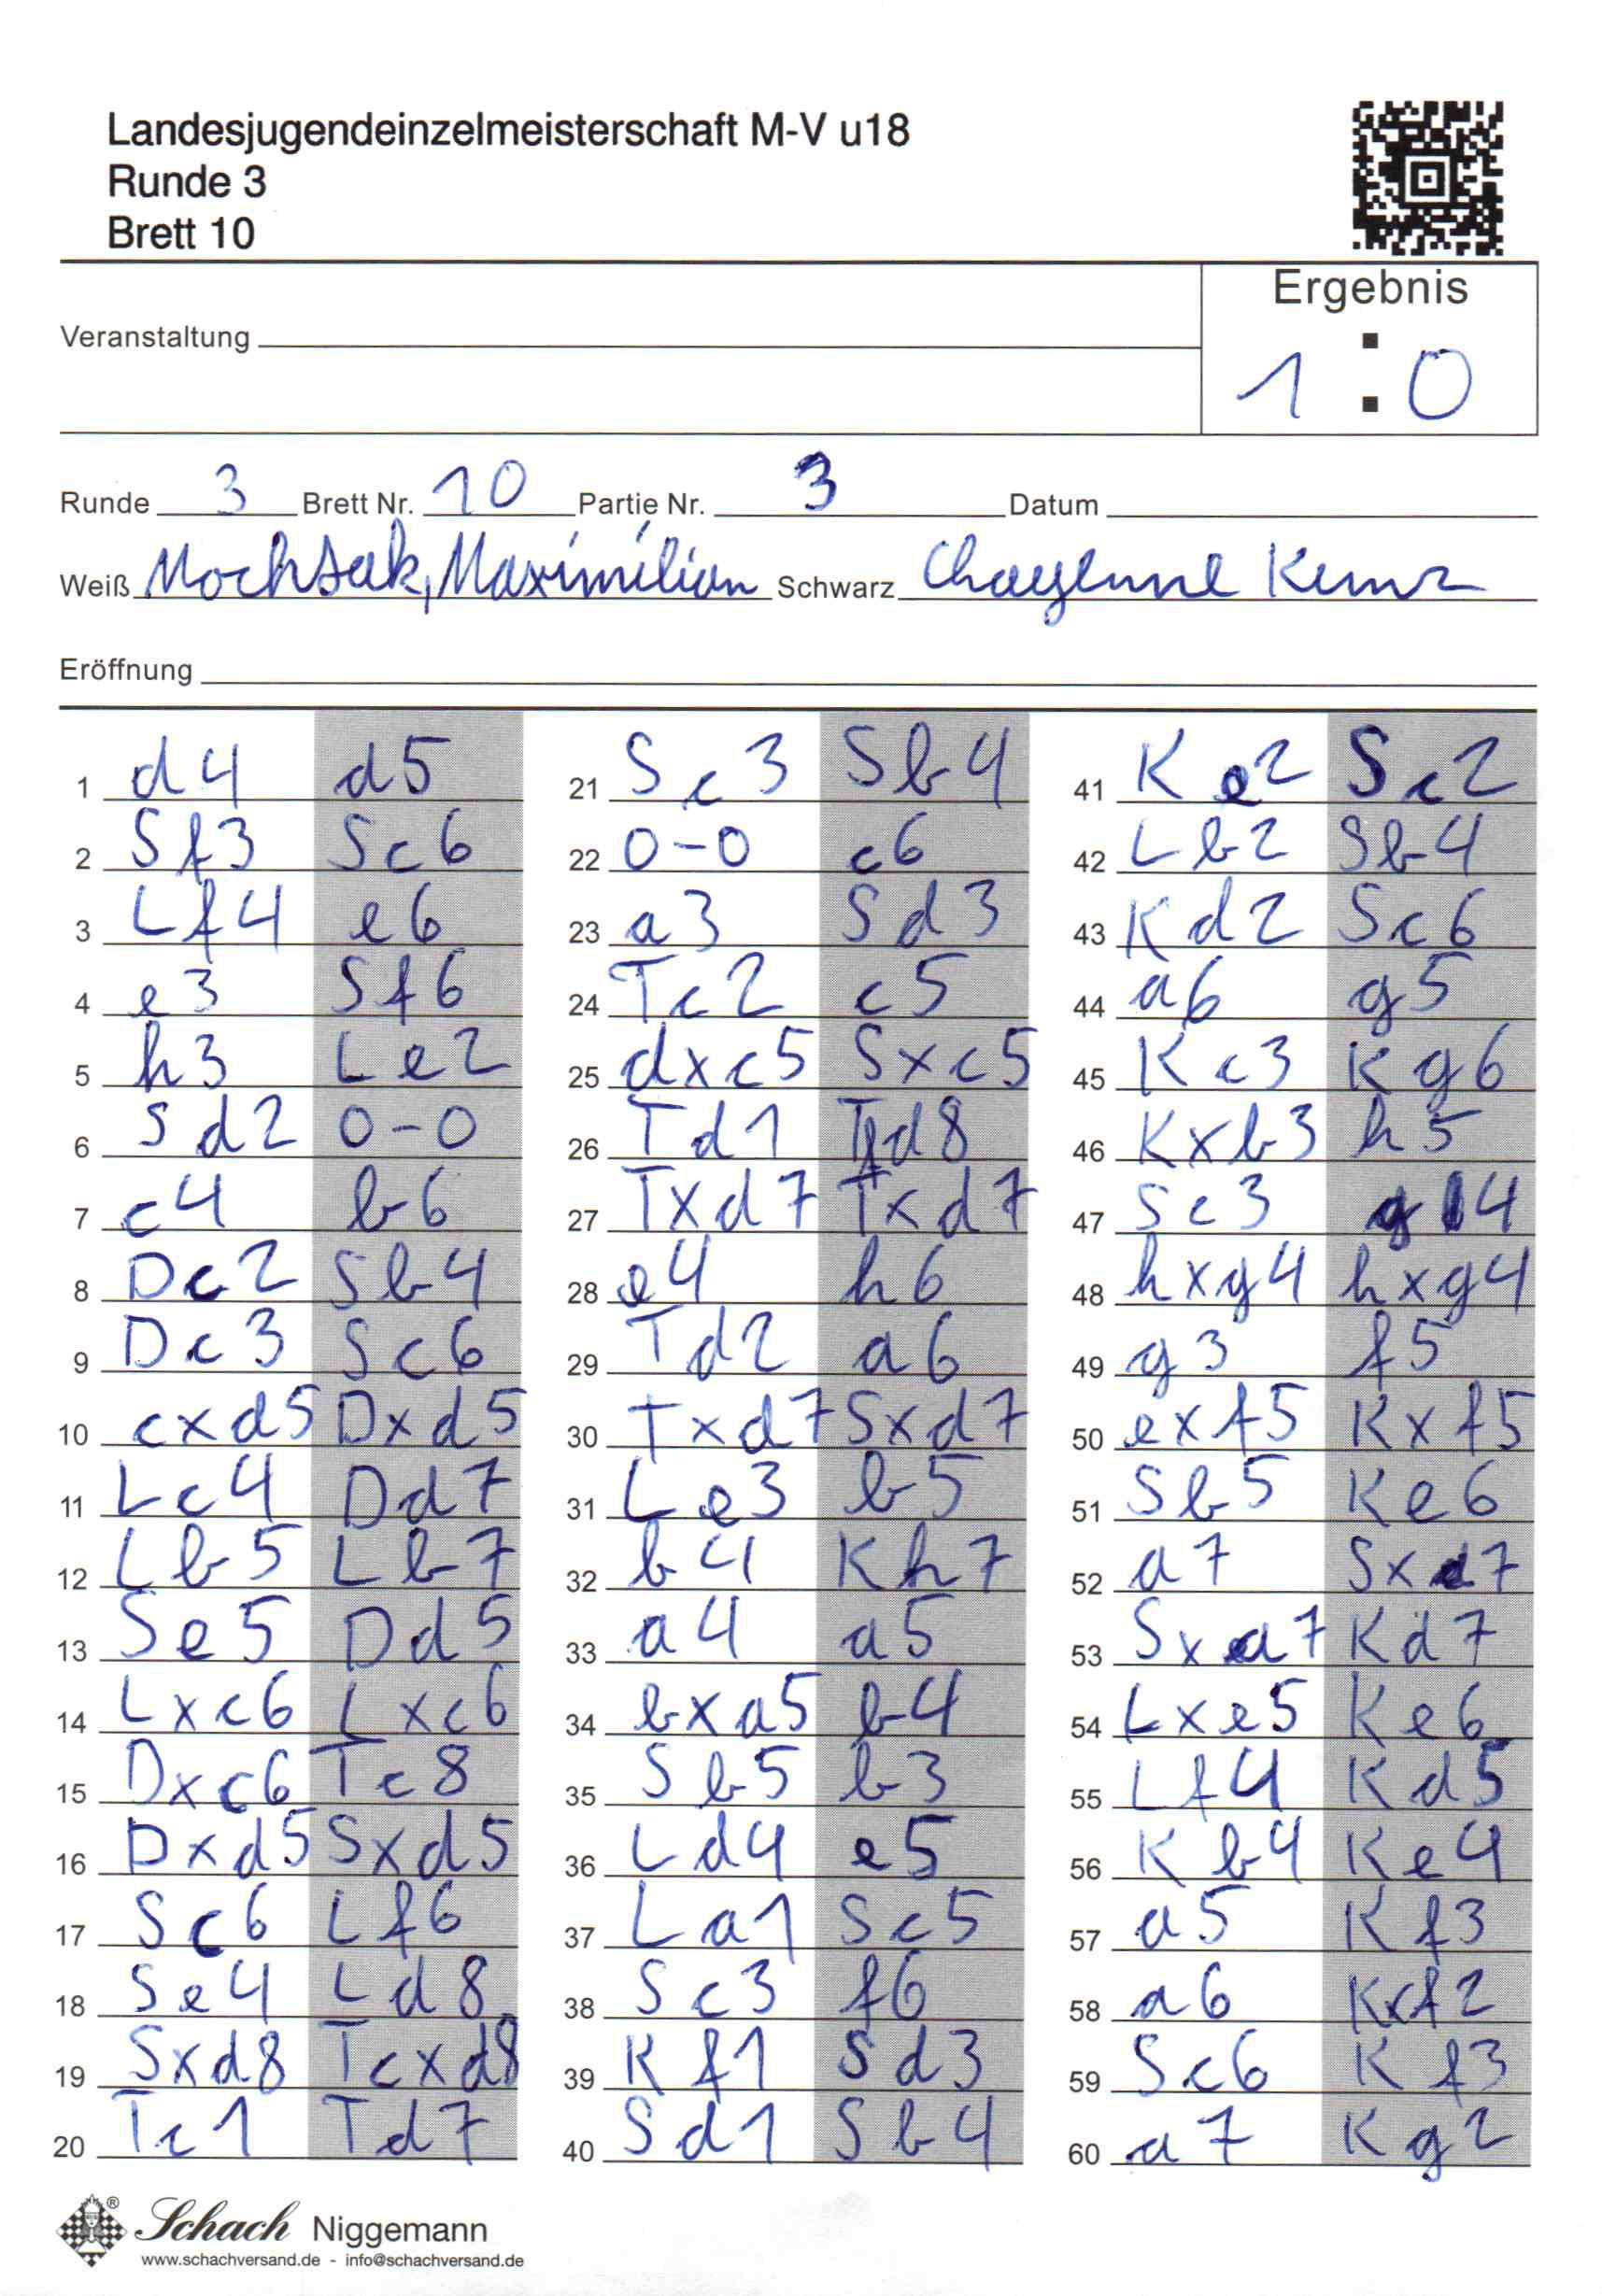 Landesjugendeinzelmeisterschaft M-V u18
Runde 3
Brett 10
Ergebnis
Veranstaltung
1 : 0
Runde 3 Brett Nr. 10 Partie Nr. 3 Datum
Weiß Mochsak, Maximilian Schwarz Chayenne
Eröffnung
1 d4 d5
2 Sf3 Sc6
3 Lf4 e6
4 e3 Sf6
5 h3 Le2
6 Sd2 0-0
7 c4 b6
8 Dc2 Sb4
9 Dc3 Sc6
10 cxd5 Dxd5
11 Lc4 Dd7
12 Lb5 Lb7
13 Se5 Dd5
14 Lxc6 Lxc6
15 Dxc6 Tc8
16 Dxd5 Sxd5
17 Sc6 Lf6
18 Se4 Ld8
19 Sxd8 Tcxd8
20 Tc1 Td7
21 Sc3 Sb4
22 0-0 c6
23 a3 Sd3
24 Tc2 c5
25 dxc5 Sxc5
26 Td1 Tfd8
27 Txd7 Txd7
28 e4 h6
29 Td2 a6
30 Txd7 Sxd7
31 Le3 b5
32 b4 Kh7
33 a4 a5
34 bxa5 b4
35 Sb5 b3
36 Ld4 e5
37 La1 Sc5
38 Sc3 f6
39 Kf1 Sd3
40 Sd1 Sb4
41 Ke2 Sc2
42 Lb2 Sb4
43 Kd2 Sc6
44 a6 g5
45 Kc3 Kg6
46 Kxb3 h5
47 Sc3 g4
48 hxg4 hxg4
49 g3 f5
50 exf5 Kxf5
51 Sb5 Ke6
52 a7 Sxa7
53 Sxa7 Kd7
54 Lxe5 Ke6
55 Lf4 Kd5
56 Kb4 Ke4
57 a5 Kf3
58 a6 Kxf2
59 Sc6 Kf3
60 a7 Kg2
® Schach Niggemann
www.schachversand.de - info@schachversand.de